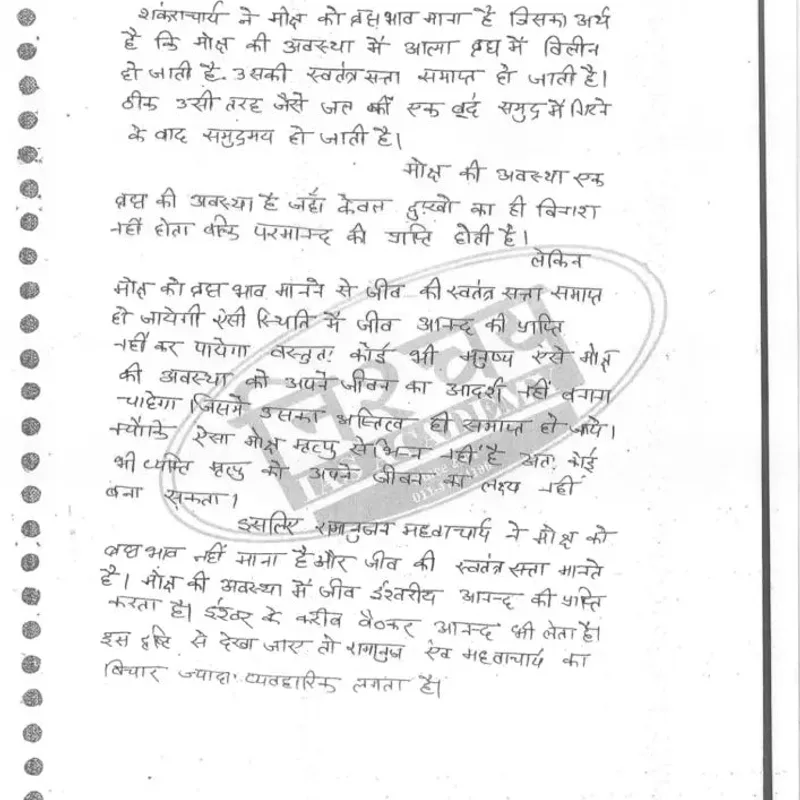 शंकराचार्य ने मोक्ष को ब्रह्म भाव माना है जिसका अर्थ
है कि मोक्ष की अवस्था में आत्मा ब्रह्म में विलीन
हो जाती है. उसकी स्वतंत्र सत्ता समाप्त हो जाती है।
ठीक उसी तरह जैसे जल की एक बूंद समुद्र में गिरने
के बाद समुद्रमय हो जाती है।
मोक्ष की अवस्था एक
ब्रह्म की अवस्था है जहाँ केवल दुःखो का ही विनाश
नहीं होता बल्कि परमानन्द की प्राप्ति होती है।
लेकिन
मोक्ष को ब्रह्म भाव मानने से जीव की स्वतंत्र सत्ता समाप्त
हो जायेगी ऐसी स्थिति में जीव आनन्द की प्राप्ति
नहीं कर पायेगा वस्तुतः कोई भी मनुष्य ऐसे मोक्ष
की अवस्था को अपने जीवन का आदर्श नहीं बनाना
चाहेगा जिसमें उसका अस्तित्व ही समाप्त हो जाये।
क्योंकि ऐसा मोक्ष मृत्यु से भिन्न नहीं है अतः कोई
भी व्यक्ति मृत्यु को अपने जीवन का लक्ष्य नहीं
बना सकता।
इसलिए रामानुजन मध्वाचार्य ने मोक्ष को
ब्रह्म भाव नहीं माना है और जीव की स्वतंत्र सत्ता मानते
है। मोक्ष की अवस्था में जीव ईश्वरीय आनन्द की प्राप्ति
करता है। ईश्वर के करीब बैठकर आनन्द भी लेता है।
इस दृष्टि से देखा जाए तो रामानुज एंव मध्वाचार्य का
विचार ज्यादा व्यवहारिक लगता है।